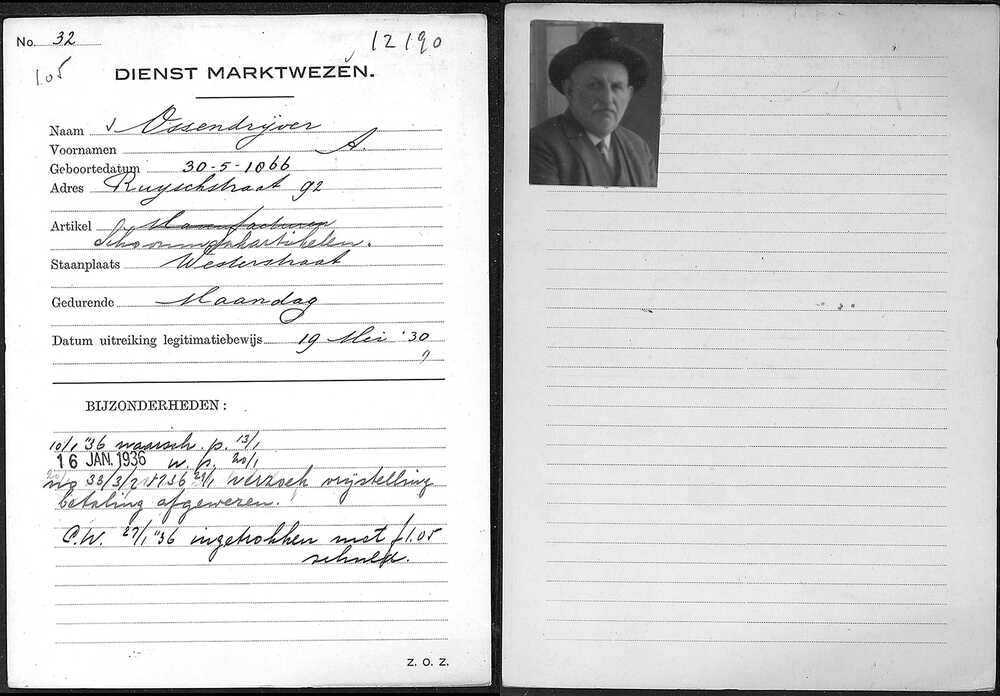 No. 32
12190
105
DIENST MARKTWEZEN.
Naam Ossendrijver
Voornamen A.
Geboortedatum 30-5-1866
Adres Ruyschstraat 92
Artikel Manufacturen
Schoonmaakartikelen.
Staanplaats Westerstraat
Gedurende Maandag
Datum uitreiking legitimatiebewijs 19 Mei '30
BIJZONDERHEDEN:
10/1 '36 waarsch. p. 13/1
16 JAN. 1936 w. p. 20/1
no 33/3/2 1936 27/1 verzoek vrijstelling
betaling afgewezen.
C.W. 27/1 '36 ingetrokken met f 1.05
schuld.
Z. O. Z.